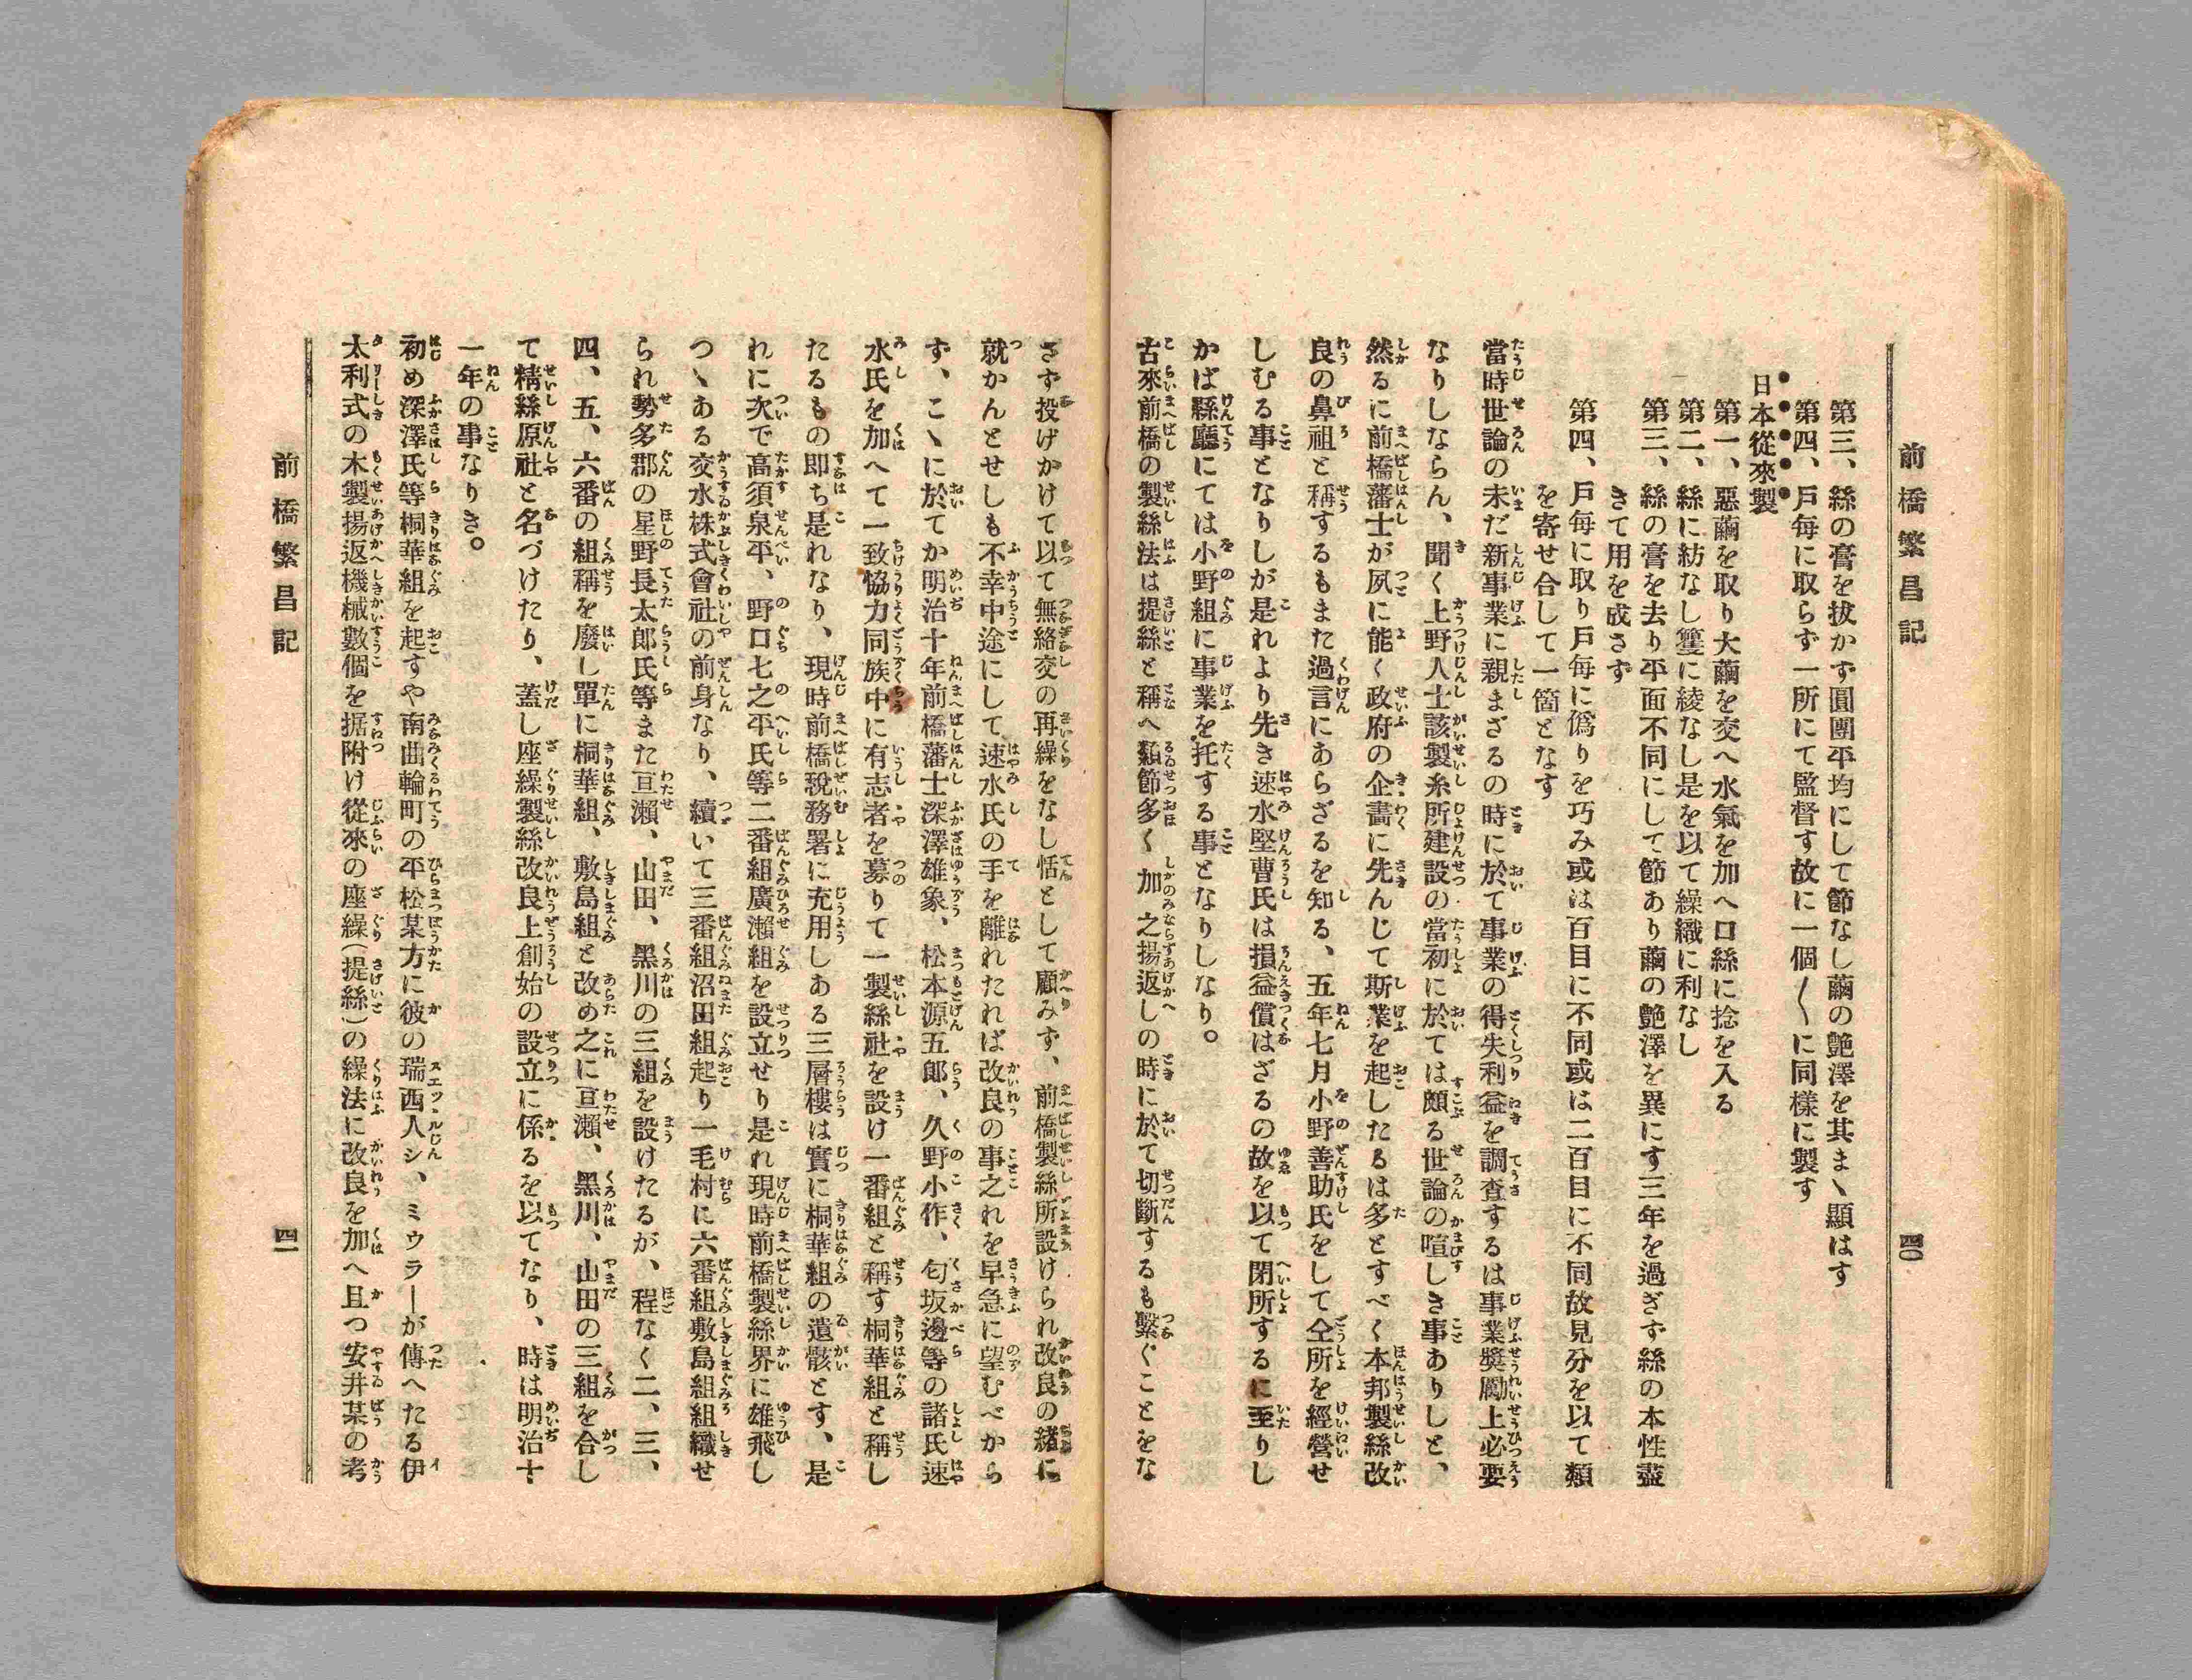 前橋繁昌記
四〇
第三、絲の膏を拔かず圓團平均にして節なし繭の艶澤を其まゝ顯はす
第四、戸每に取らず一所にて監督す故に一個〱に同樣に製す
日本從來製
第一、惡繭を取り大繭を交へ水氣を加へ口絲に捻を入る
第二、絲に紡なし籰に綾なし是を以て繰織に利なし
第三、絲の膏を去り平面不同にして節あり繭の艶澤を異にす三年を過ぎず絲の本性盡
きて用を成さず
第四、戸每に取り戸每に僞りを巧み或は百目に不同或は二百目に不同故見分を以て類
を寄せ合して一箇となす
當時世論の未だ新事業に親まざるの時に於て事業の得失利益を調査するは事業奬勵上必要
なりしならん、聞く上野人士該製糸所建設の當初に於ては頗る世論の喧しき事ありしと、
然るに前橋藩士が夙に能く政府の企畵に先んじて斯業を起したるは多とすべく本邦製絲改
良の鼻祖と稱するもまた過言にあらざるを知る、五年七月小野善助氏をして仝所を經營せ
しむる事となりしが是れより先き速水堅曹氏は損益償はざるの故を以て閉所するに至りし
かば縣廳にては小野組に事業を托する事となりしなり。
古來前橋の製絲法は提絲と稱へ類節多く加之揚返しの時に於て切斷するも繫ぐことをな
さず投げかけて以て無絡交の再繰をなし恬として顧みず、前橋製絲所設けられ改良の緖に
就かんとせしも不幸中途にして速水氏の手を離れたれば改良の事之れを早急に望むべから
ず、こゝに於てか明治十年前橋藩士深澤雄象、松本源五郞、久野小作、匂坂邊等の諸氏速
水氏を加へて一致協力同族中に有志者を募りて一製絲社を設け一番組と稱す桐華組と稱し
たるもの卽ち是れなり、現時前橋稅務署に充用しある三層樓は實に桐華組の遺骸とす、是
れに次で高須泉平、野口七之平氏等二番組廣瀨組を設立せり是れ現時前橋製絲界に雄飛し
つゝある交水株式會社の前身なり、續いて三番組沼田組起り一毛村に六番組敷島組組織せ
られ勢多郡の星野長太郞氏等また亘瀨、山田、黑川の三組を設けたるが、程なく二、三、
四、五、六番の組稱を廢し單に桐華組、敷島組と改め之に亘瀨、黑川、山田の三組を合し
て精絲原社と名づけたり、蓋し座繰製絲改良上創始の設立に係るを以てなり、時は明治十
一年の事なりき。
初め深澤氏等桐華組を起すや南曲輪町の平松某方に彼の瑞西人シ、ミウラーが傳へたる伊
太利式の木製揚返機械數個を据附け從來の座繰（提絲）の繰法に改良を加へ且つ安井某の考
前橋繁昌記
四一